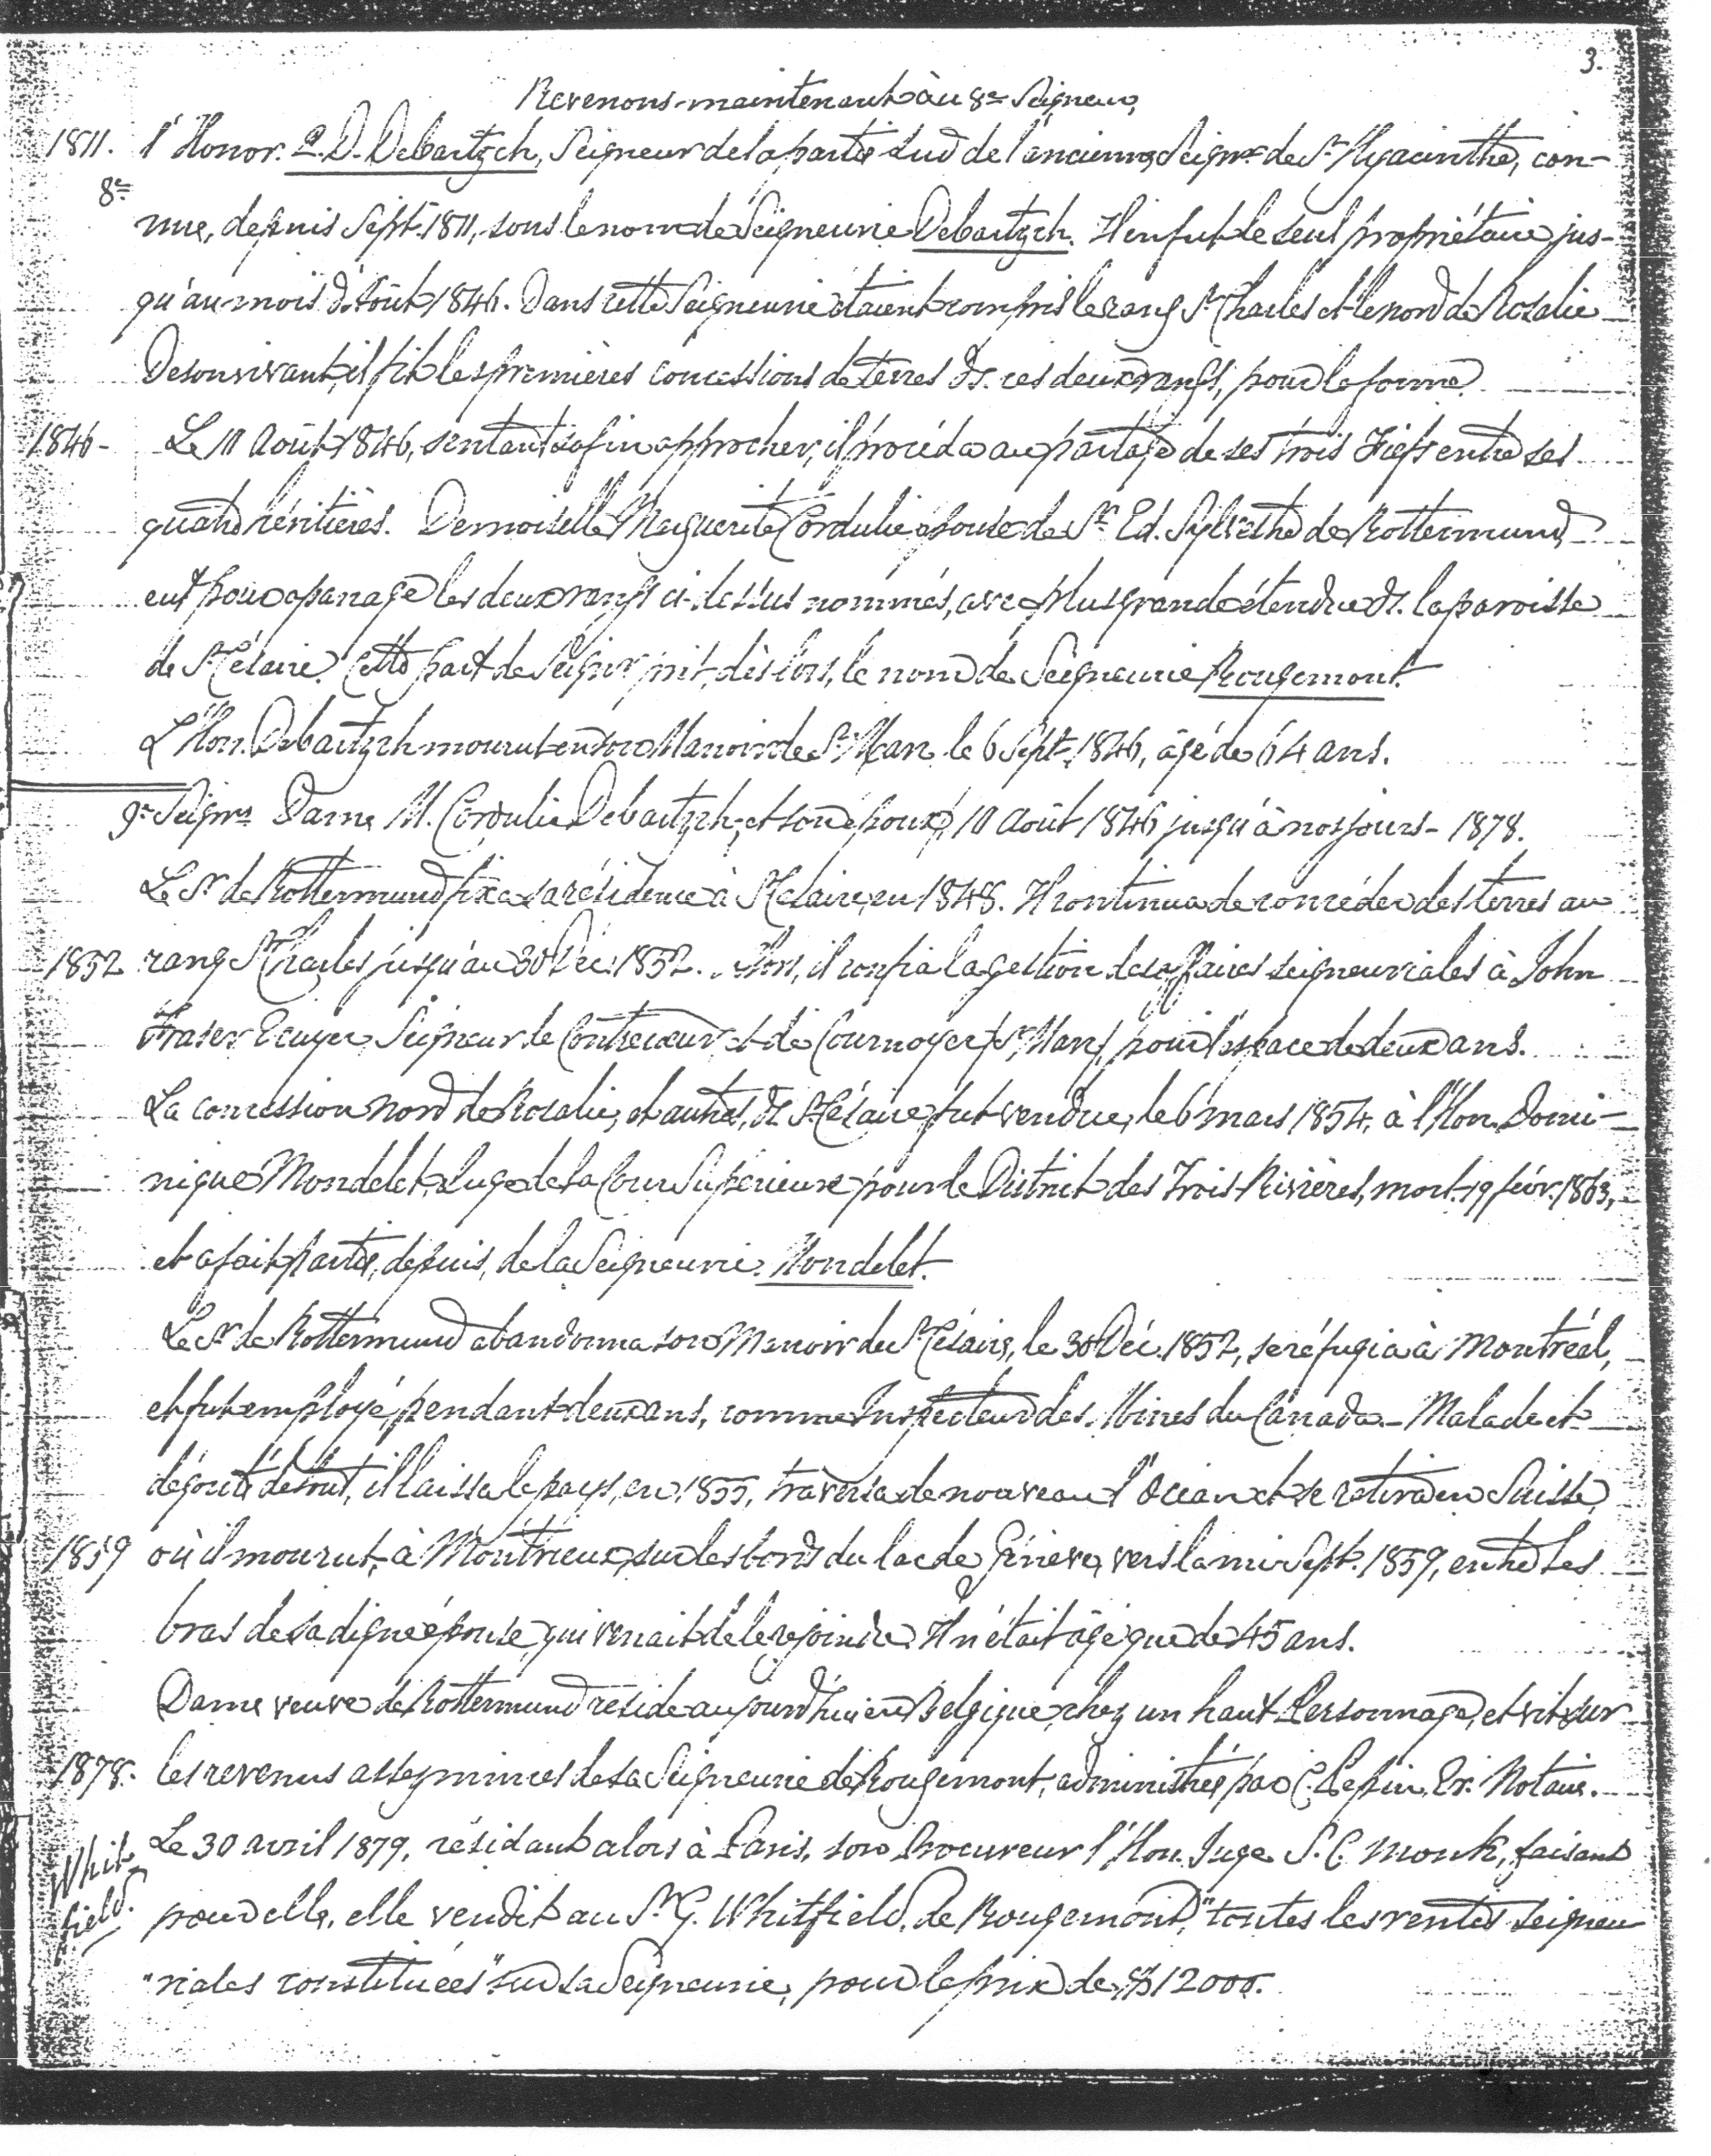 3.
Revenons maintenant au 8e Seigneur,
1811. l'Honor. P. D. Debartzch, Seigneur de la partie sud de l'ancienne Seignie de St Hyacinthe, con-
8e
nue, depuis Sept. 1811, sous le nom de Seigneurie Debartzch. Il en fut le seul propriétaire jus-
qu'au mois d'Août 1846. Dans cette Seigneurie étaient compris le rang St Charles et le nord de Rosalie
De son vivant, il fit les premières concessions de terres ds. ces deux rangs, pour la forme.
1846- Le 10 Août 1846, sentant sa fin approcher, il procéda au partage de ses trois Fiefs entre ses
quatre héritières. Demoiselle Marguerite Cordulie épouse de Sr Ed. Sylvestre de Rottermund,
eut pour apanage les deux rangs ci-dessus nommés, avec plus grande étendue ds. la paroisse
de St Césaire. Cette part de Seignie prit, dès lors, le nom de Seigneurie Rougemont.
L'Hon. Debartzch mourut en son Manoir de St Marc, le 6 Sept. 1846, âgé de 64 ans.
9e Seignr Dame M. Cordulie Debartzch, et son époux, 10 Août 1846 jusqu'à nos jours - 1878.
Le Sr de Rottermund fixa sa résidence à St Césaire, en 1848. Il continua de concéder des terres au
1852 rang St Charles jusqu'au 30 Déc. 1852. Alors, il confia la gestion des affaires seigneuriales à John
Fraser Ecuyer, Seigneur de Contrecoeur et de Cournoyer (St Marc) pour l'espace de deux ans.
La concession nord de Rosalie, et autres, ds St Césaire, fut vendue, le 6 mars 1854, à l'Hon. Domi-
nique Mondelet, Juge de la Cour Supérieure pour le District des Trois-Rivières, mort 19 févr. 1863,
et a fait partie, depuis, de la Seigneurie Mondelet.
Le Sr de Rottermund abandonna son Manoir de St Césaire, le 30 Déc. 1852, se réfugia à Montréal,
et fut employé, pendant deux ans, comme Inspecteur des Mines du Canada - Malade et
dégouté de tout, il laissa le pays, en 1855, traversa de nouveau l'Océan et se retira en Suisse,
1859 où il mourut, à Montreux, sur les bords du lac de Génève, vers la mi Sept. 1859, entre les
bras de sa digne épouse, qui venait de le rejoindre. Il n'était âgé que de 45 ans.
Dame veuve de Rottermund réside aujourd'hui en Belgique, chez un haut Personnage, et vit sur
1878. les revenus assez minces de sa Seigneurie de Rougemont, administrés par C. Lepin, Er. Notaire.
Whit- Le 30 avril 1879, résidant alors à Paris, son Procureur l'Hon. Juge S. C. Monk, faisant
field. pour elle, elle vendit au Sr G. Whitfield, de Rougemont, "toutes les rentes seigneu
"riales constituées" sur sa Seigneurie, pour le prix de $12000.